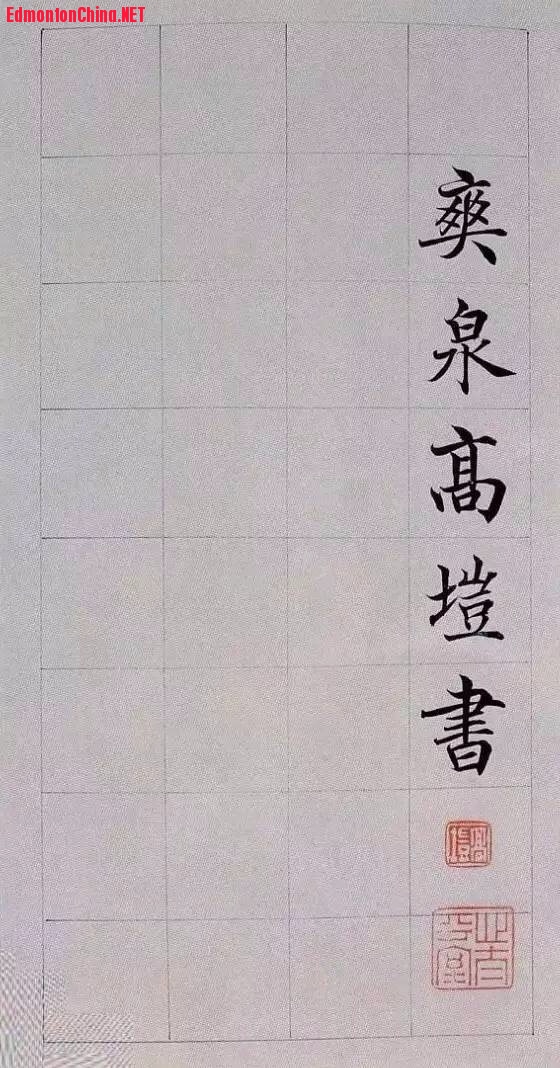 EdmontonChina.NET
爽泉高塏書